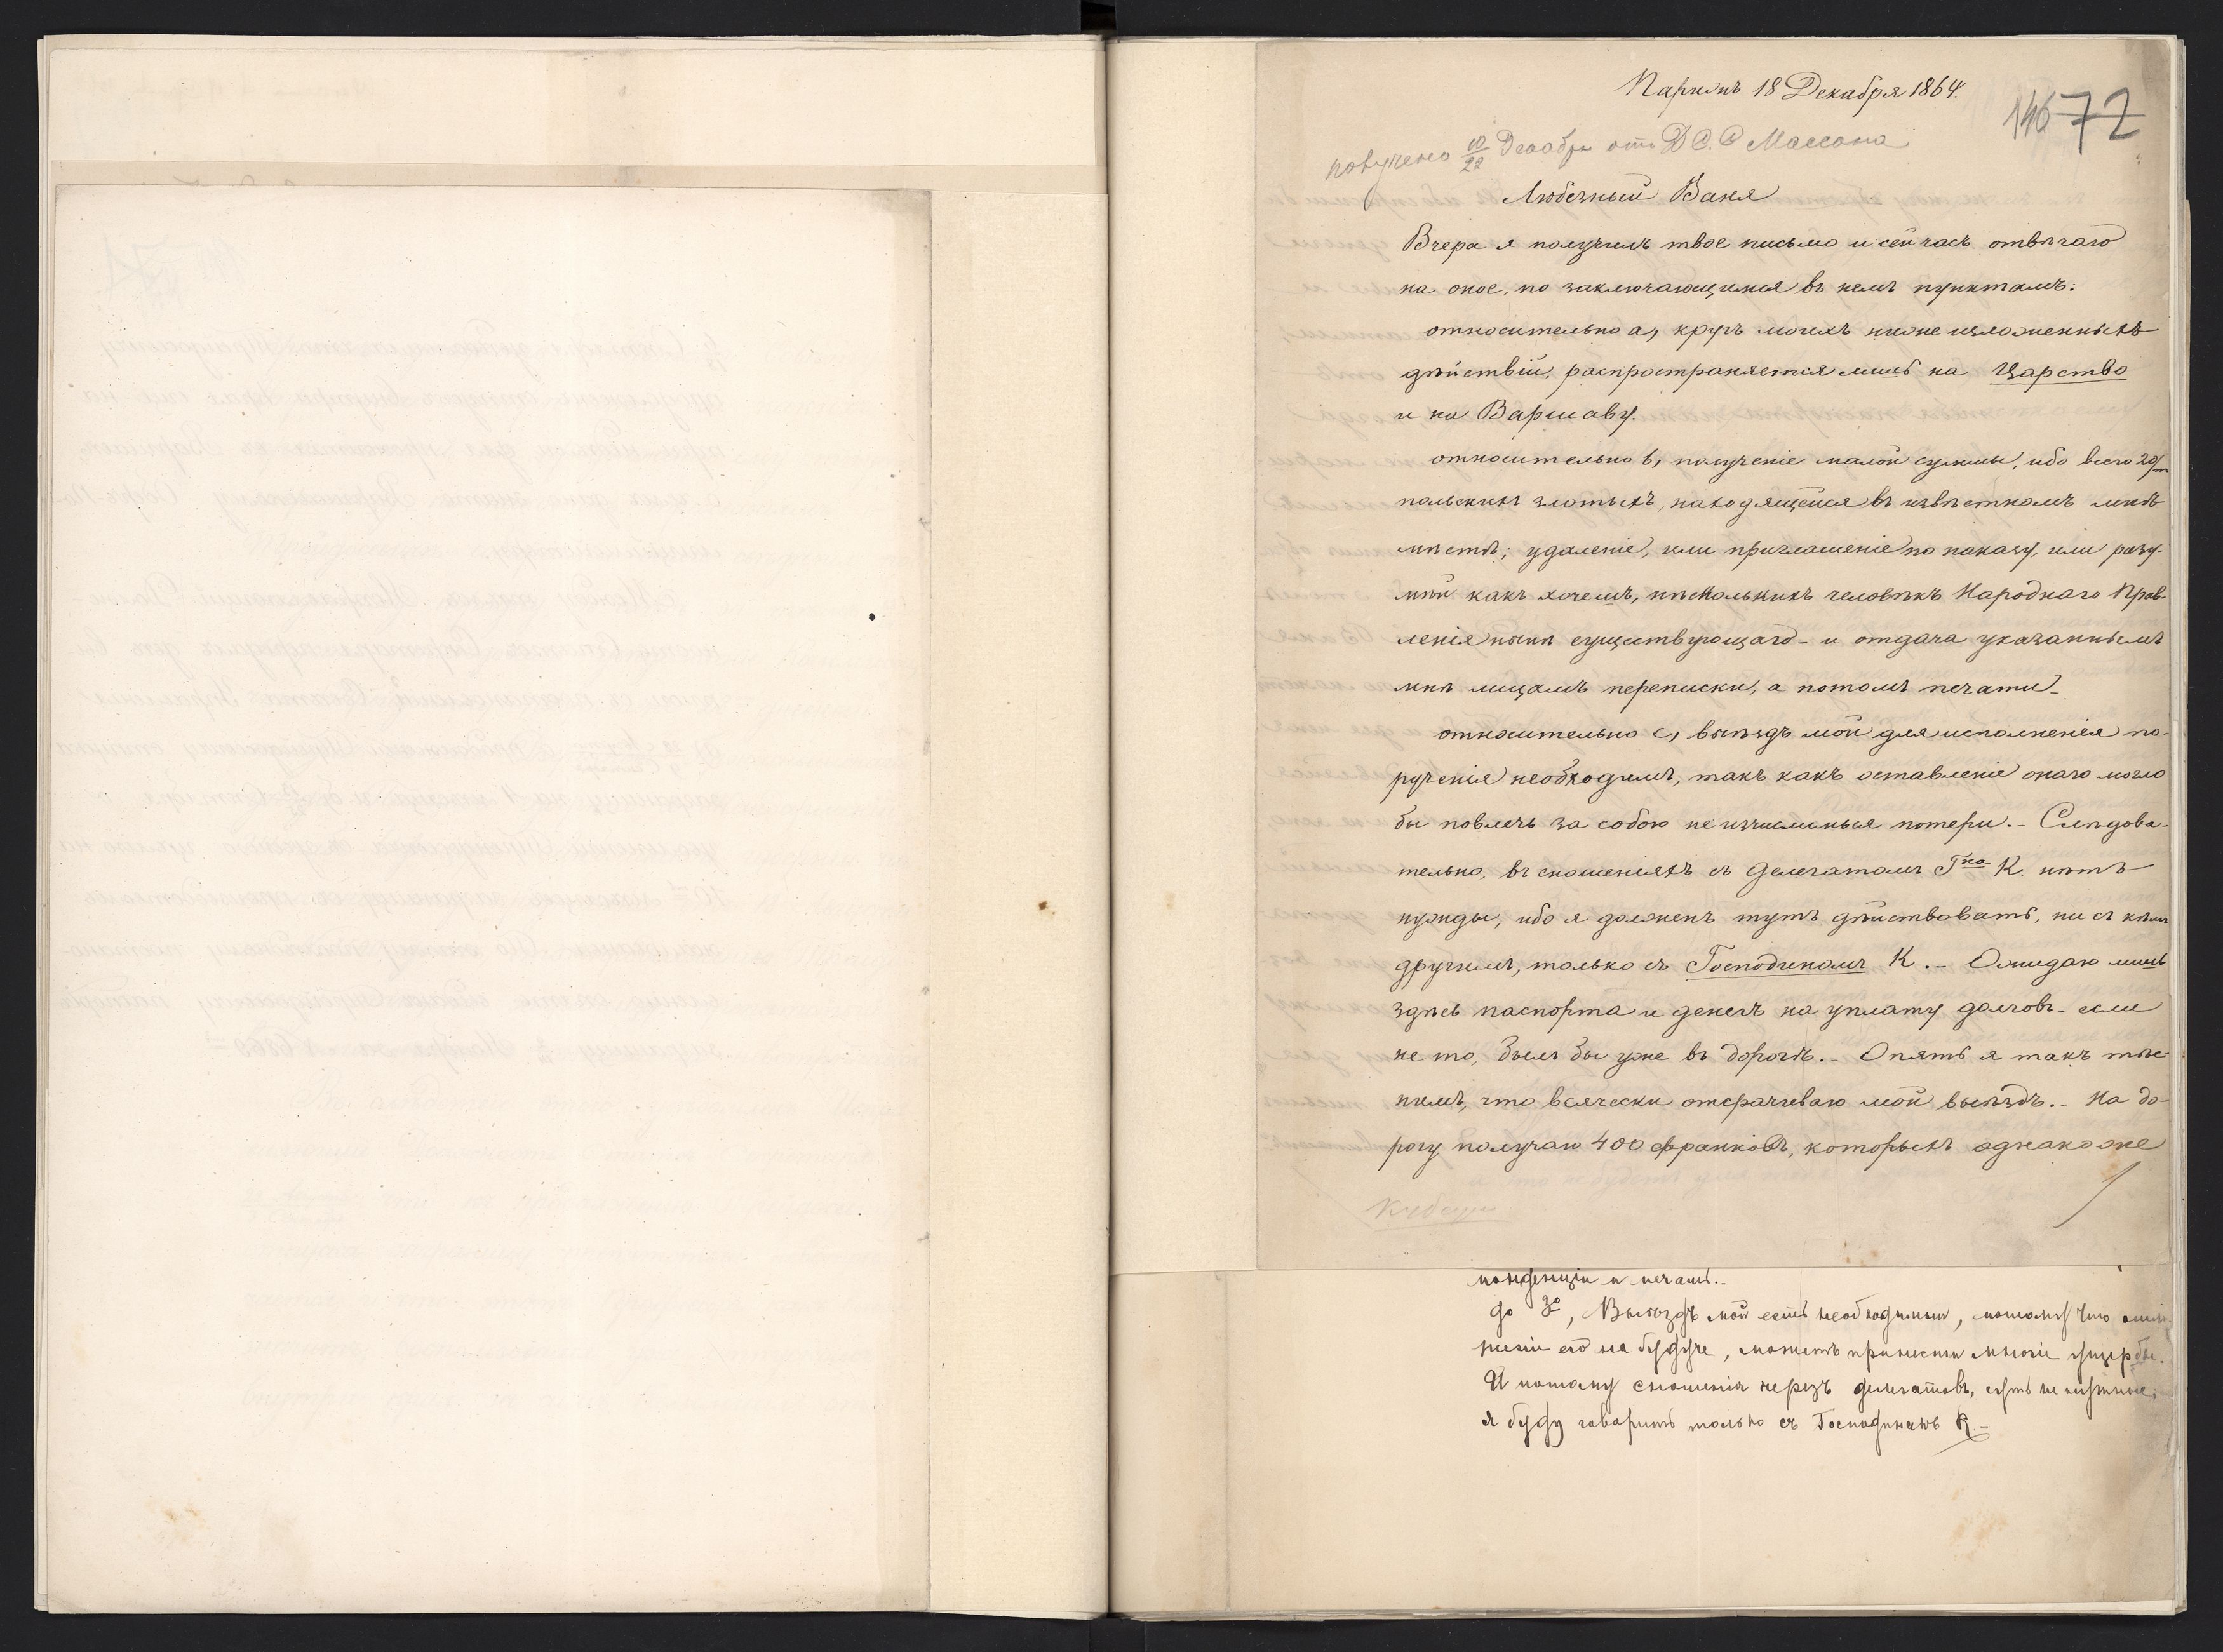 Парижъ 18 Декабря 1864.
146 72
получено 10/22 Декабря отъ Д.С.С Массона
Любезный Ваня
Вчера я получилъ твое письмо и сейчасъ отвѣчаю
на оное, по заключающимся въ немъ пунктамъ:
относительно а, кругъ моихъ ниже изложенныхъ
дѣйствій, распространяется лишь на Царство
и на Варшаву.
относительно b, полученіе малой суммы, ибо всего 20/m
польскихъ злотыхъ, находящейся въ извѣстномъ мнѣ
мѣстѣ; удаленіе, или приглашеніе по наказу, или разу-
мѣй какъ хочешь, нѣсколькихъ человѣкъ Народнаго Прав-
ленія нынѣ существующаго - и отдача указаннымъ
мнѣ лицамъ переписки, а потомъ печати -
относительно с, выѣздъ мой для исполненія по-
рученія необходимъ, такъ какъ оставленіе онаго могло
бы повлечь за собою неизчислимыя потери. - Слѣдова-
тельно, въ сношеніяхъ съ Делегатомъ Гна К. нѣтъ
нужды, ибо я долженъ тутъ дѣйствовать, ни съ кѣмъ
другимъ, только съ Господиномъ К. - Ожидаю лишь
здѣсь паспорта и денегъ на уплату долговъ - если
не то, былъ бы уже въ дорогѣ. - Опять я такъ тѣс-
нимъ, что всячески отсрачиваю мой выѣздъ. - На до-
рогу получаю 400 франковъ, которыхъ однако же
понденціи и печати..
до 3о, Выѣздъ мой есть необходимый, потому что
его на будуще, можетъ принести многіе ущербы.
И потому сношенія черезъ делегатовъ, суть не нужные,
я буду говорить только съ Господиномъ К. -